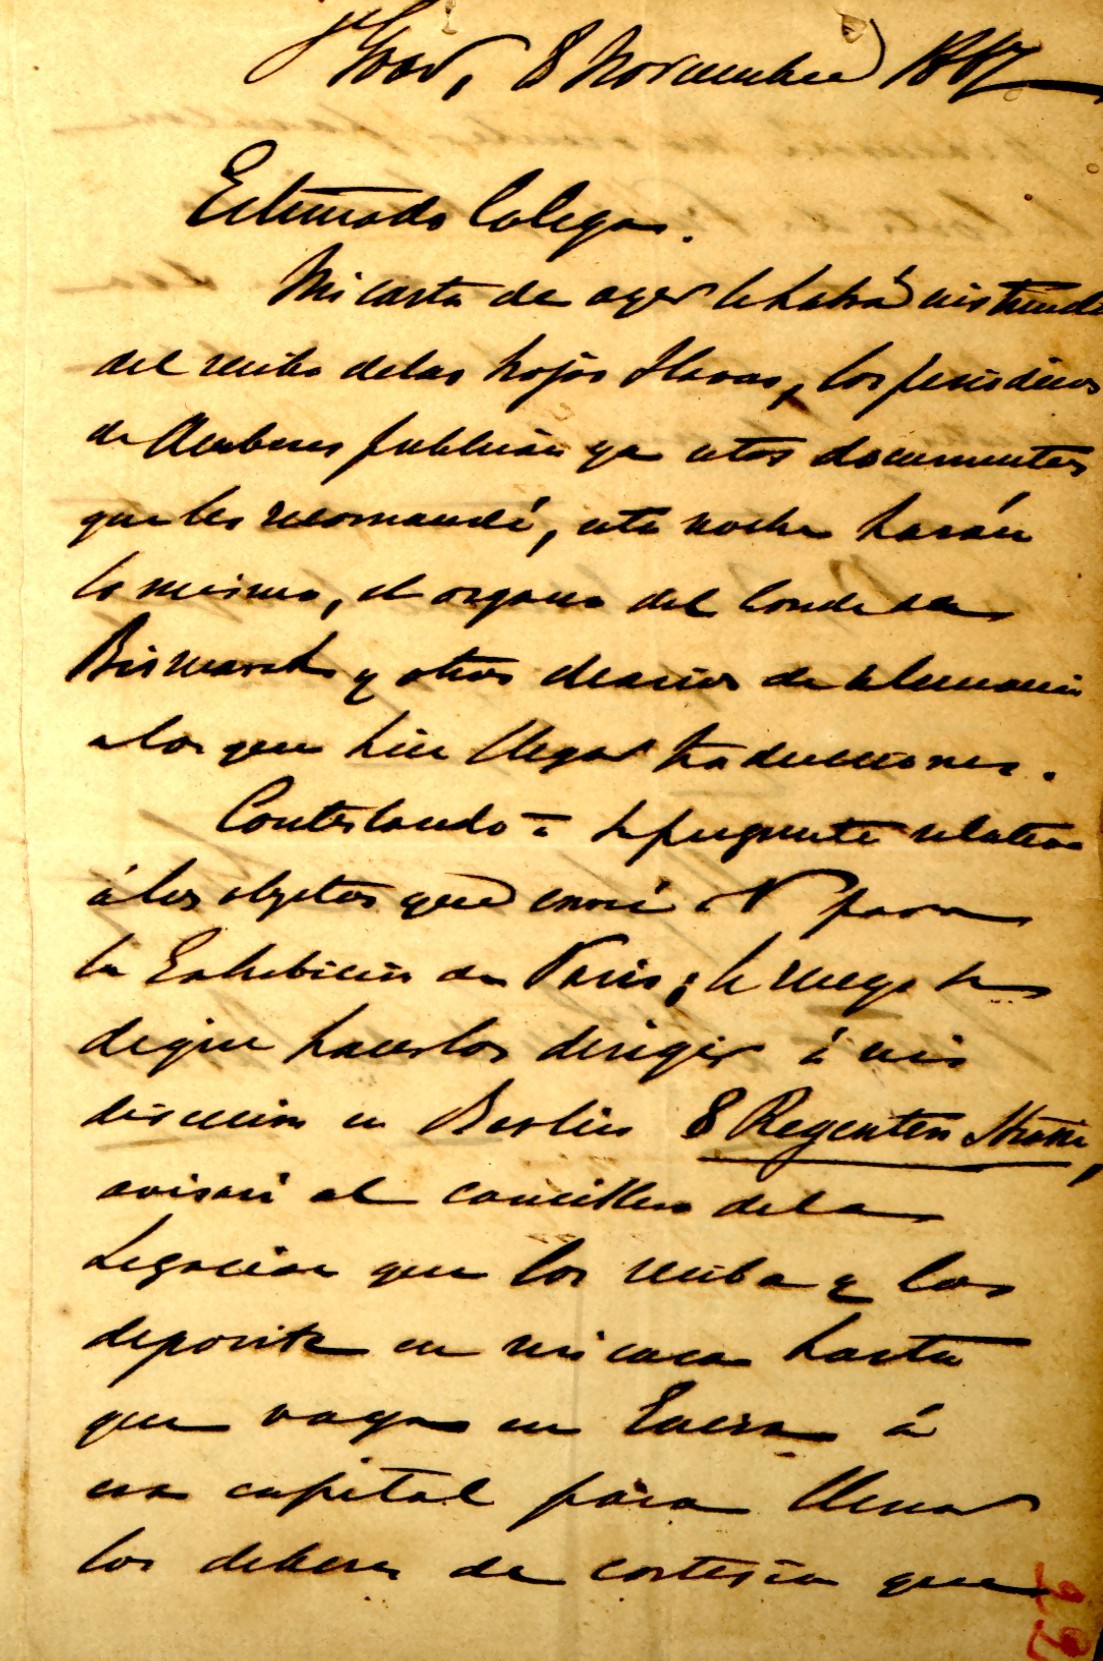 8 Novembre 1867
Estimado Colega.
Mi carta de ayer le habrá instruido
del recibo de las hojas Havas, los periódicos
de Amberes publican ya estos documentos
que les recomandé, esta noche harán
lo mismo, el organo del Conde de
Bismarck y otros diarios de Alemania
a los que hice llegar traducciones.
Contestando a su pregunta relativa
á los objetos que envié para
la Exhibicion de Paris; le ruego se
digne hacerlos dirigir á mi
direccion en Berlin 8 Regenten Strasse,
avisaré al canciller de la
Legacion que los reciba y los
deposite en mi casa hasta
que vaya en Enero á
esa capital para llenar
los deberes de cortesia que